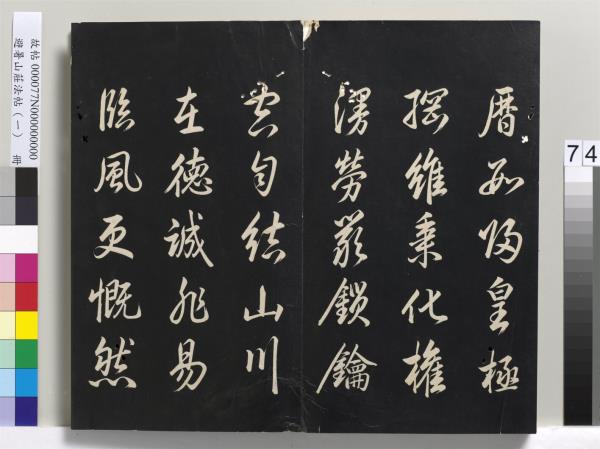 曆數歸皇極
綱維秉化權
漫勞嚴鎖鑰
空自結山川
在德誠非易
臨風更慨然
故帖 000077N000000000
避暑山莊法帖（一） 冊
74